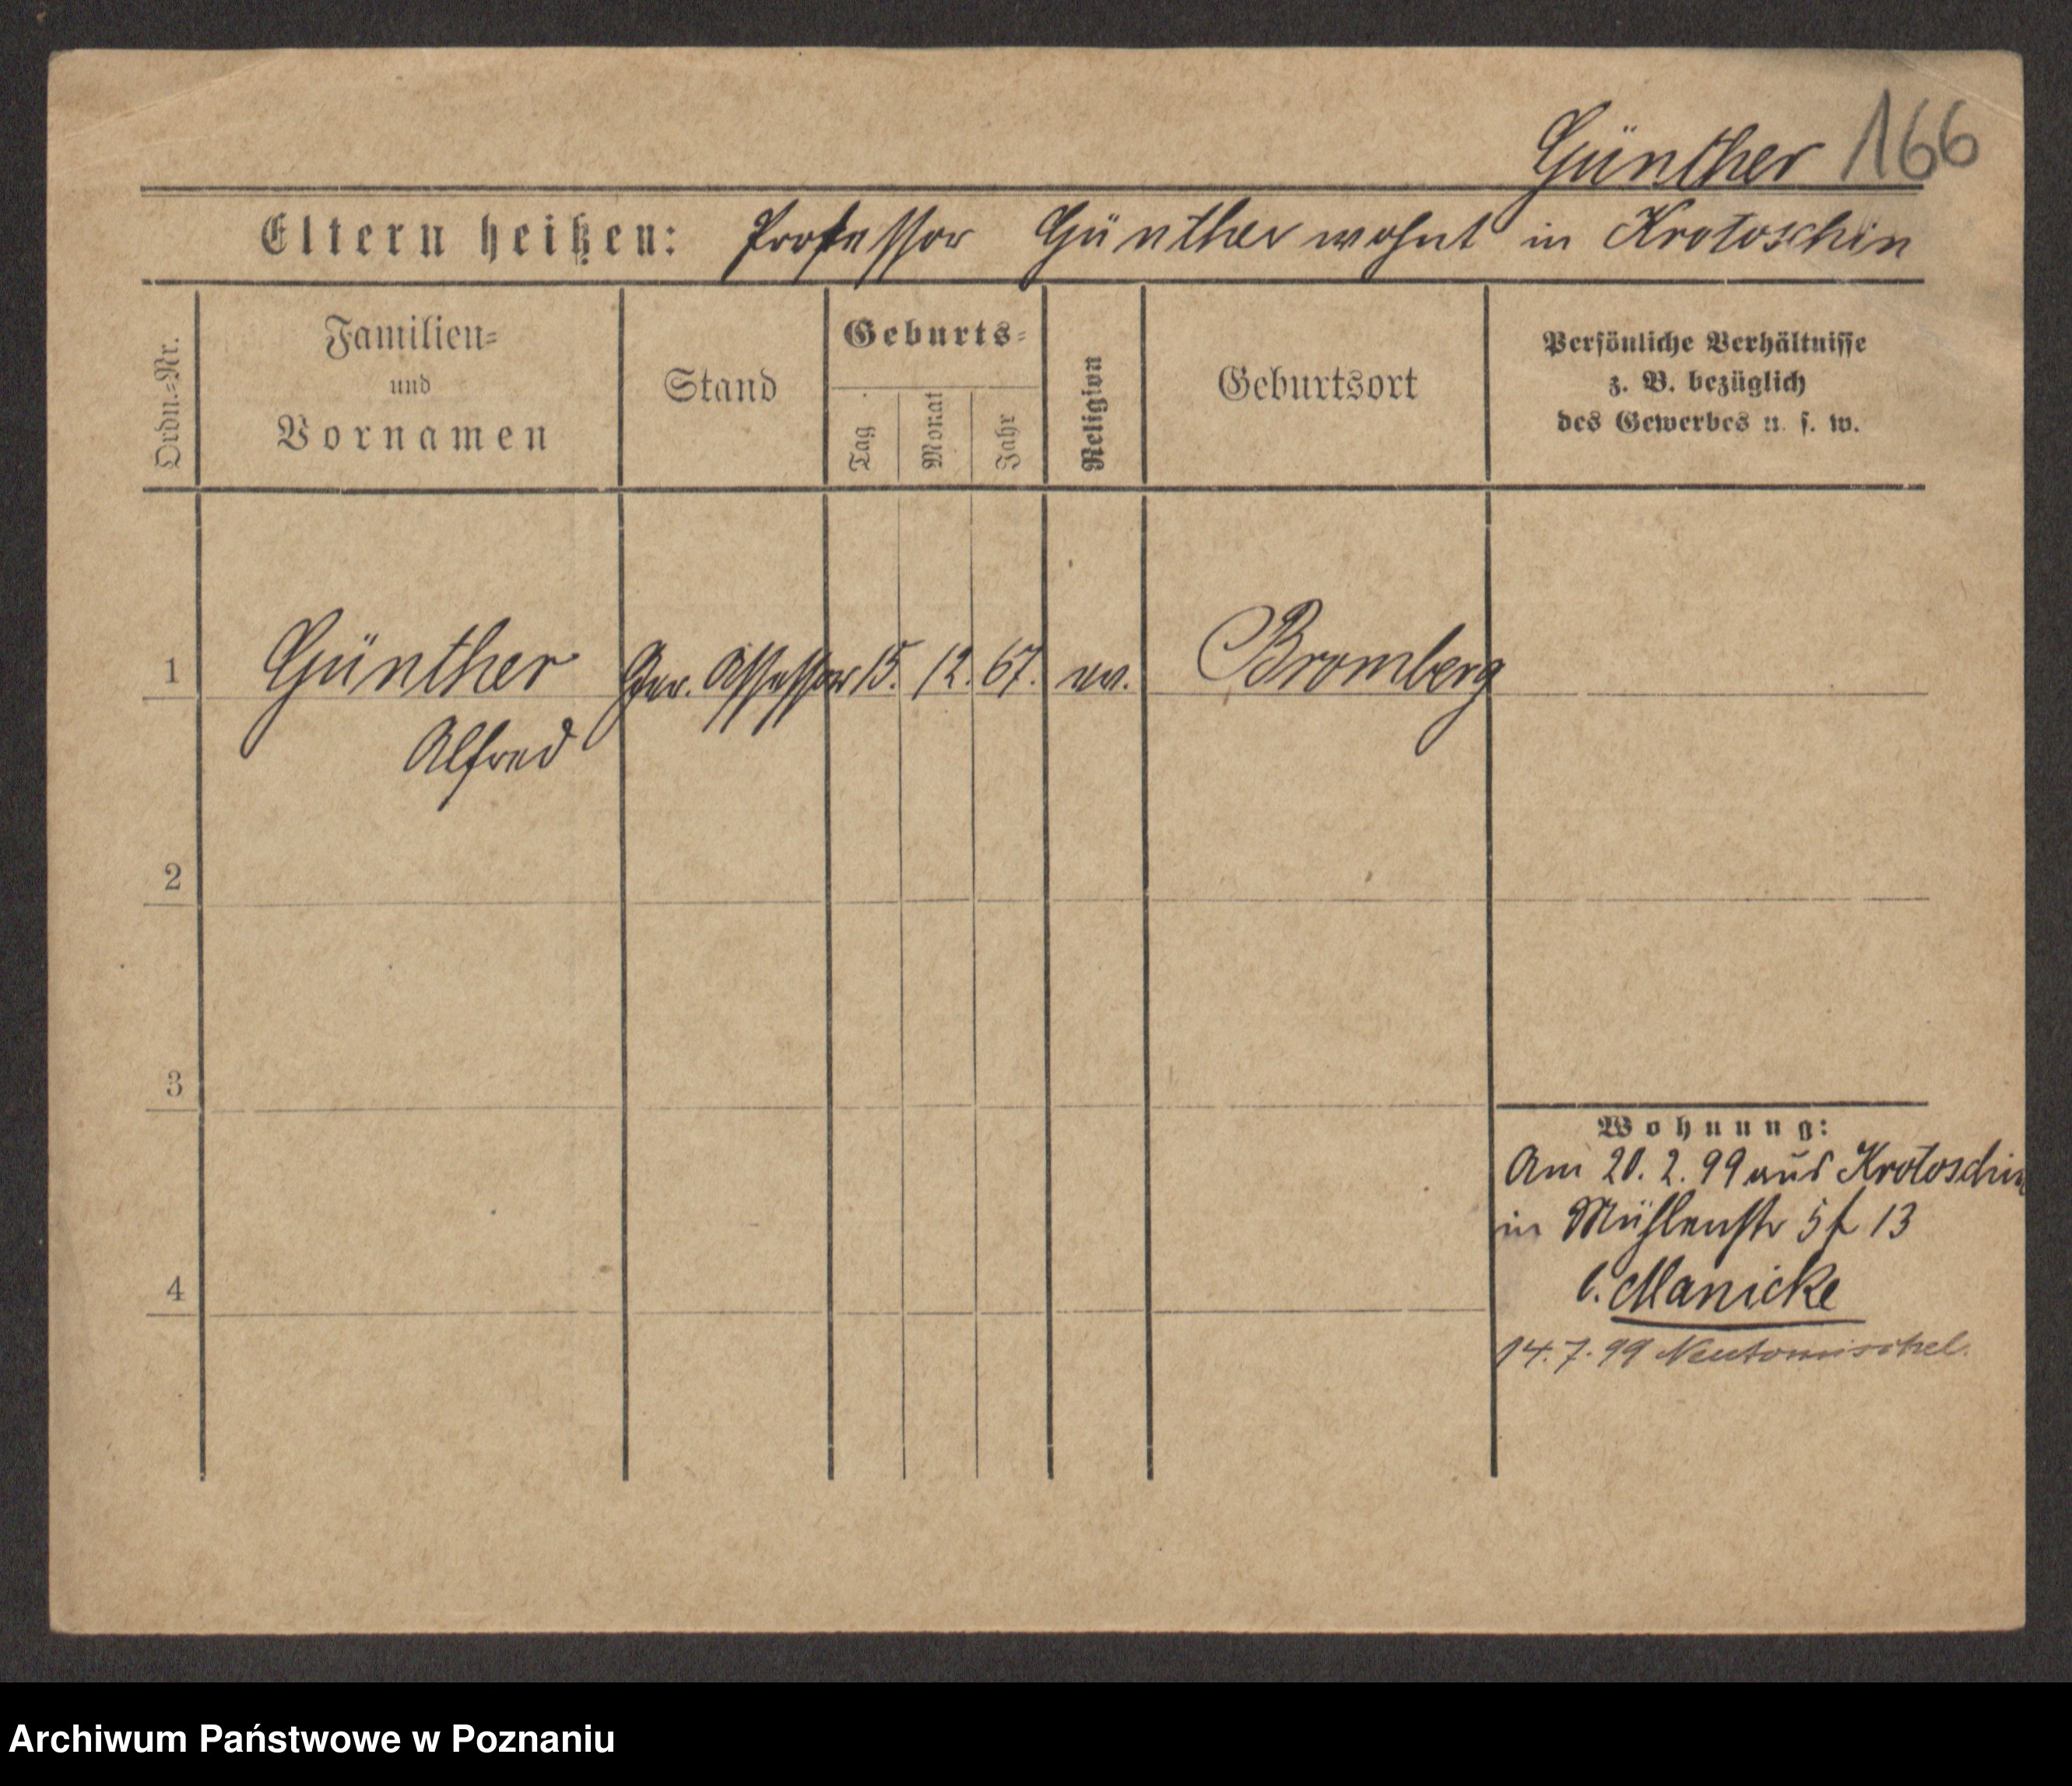 Günther 166
Eltern heißen: Professor Günther wohnt in Krotoschin
Ordn.=Nr.
Familien=
und
Vornamen
Stand
Geburts=
Tag
Monat
Jahr
Religion
Geburtsort
Persönliche Verhältnisse
z. B. bezüglich
des Gewerbes u. s. w.
1 Günther Ger. Assessor 15. 12. 67. ev. Bromberg
Alfred
2
3
Wohnung:
Am 20. 2. 99 aus Krotoschin
in Mühlenstr 5 f 13
b. Manicke
4
14. 7. 99 Neutomischel.
Archiwum Państwowe w Poznaniu